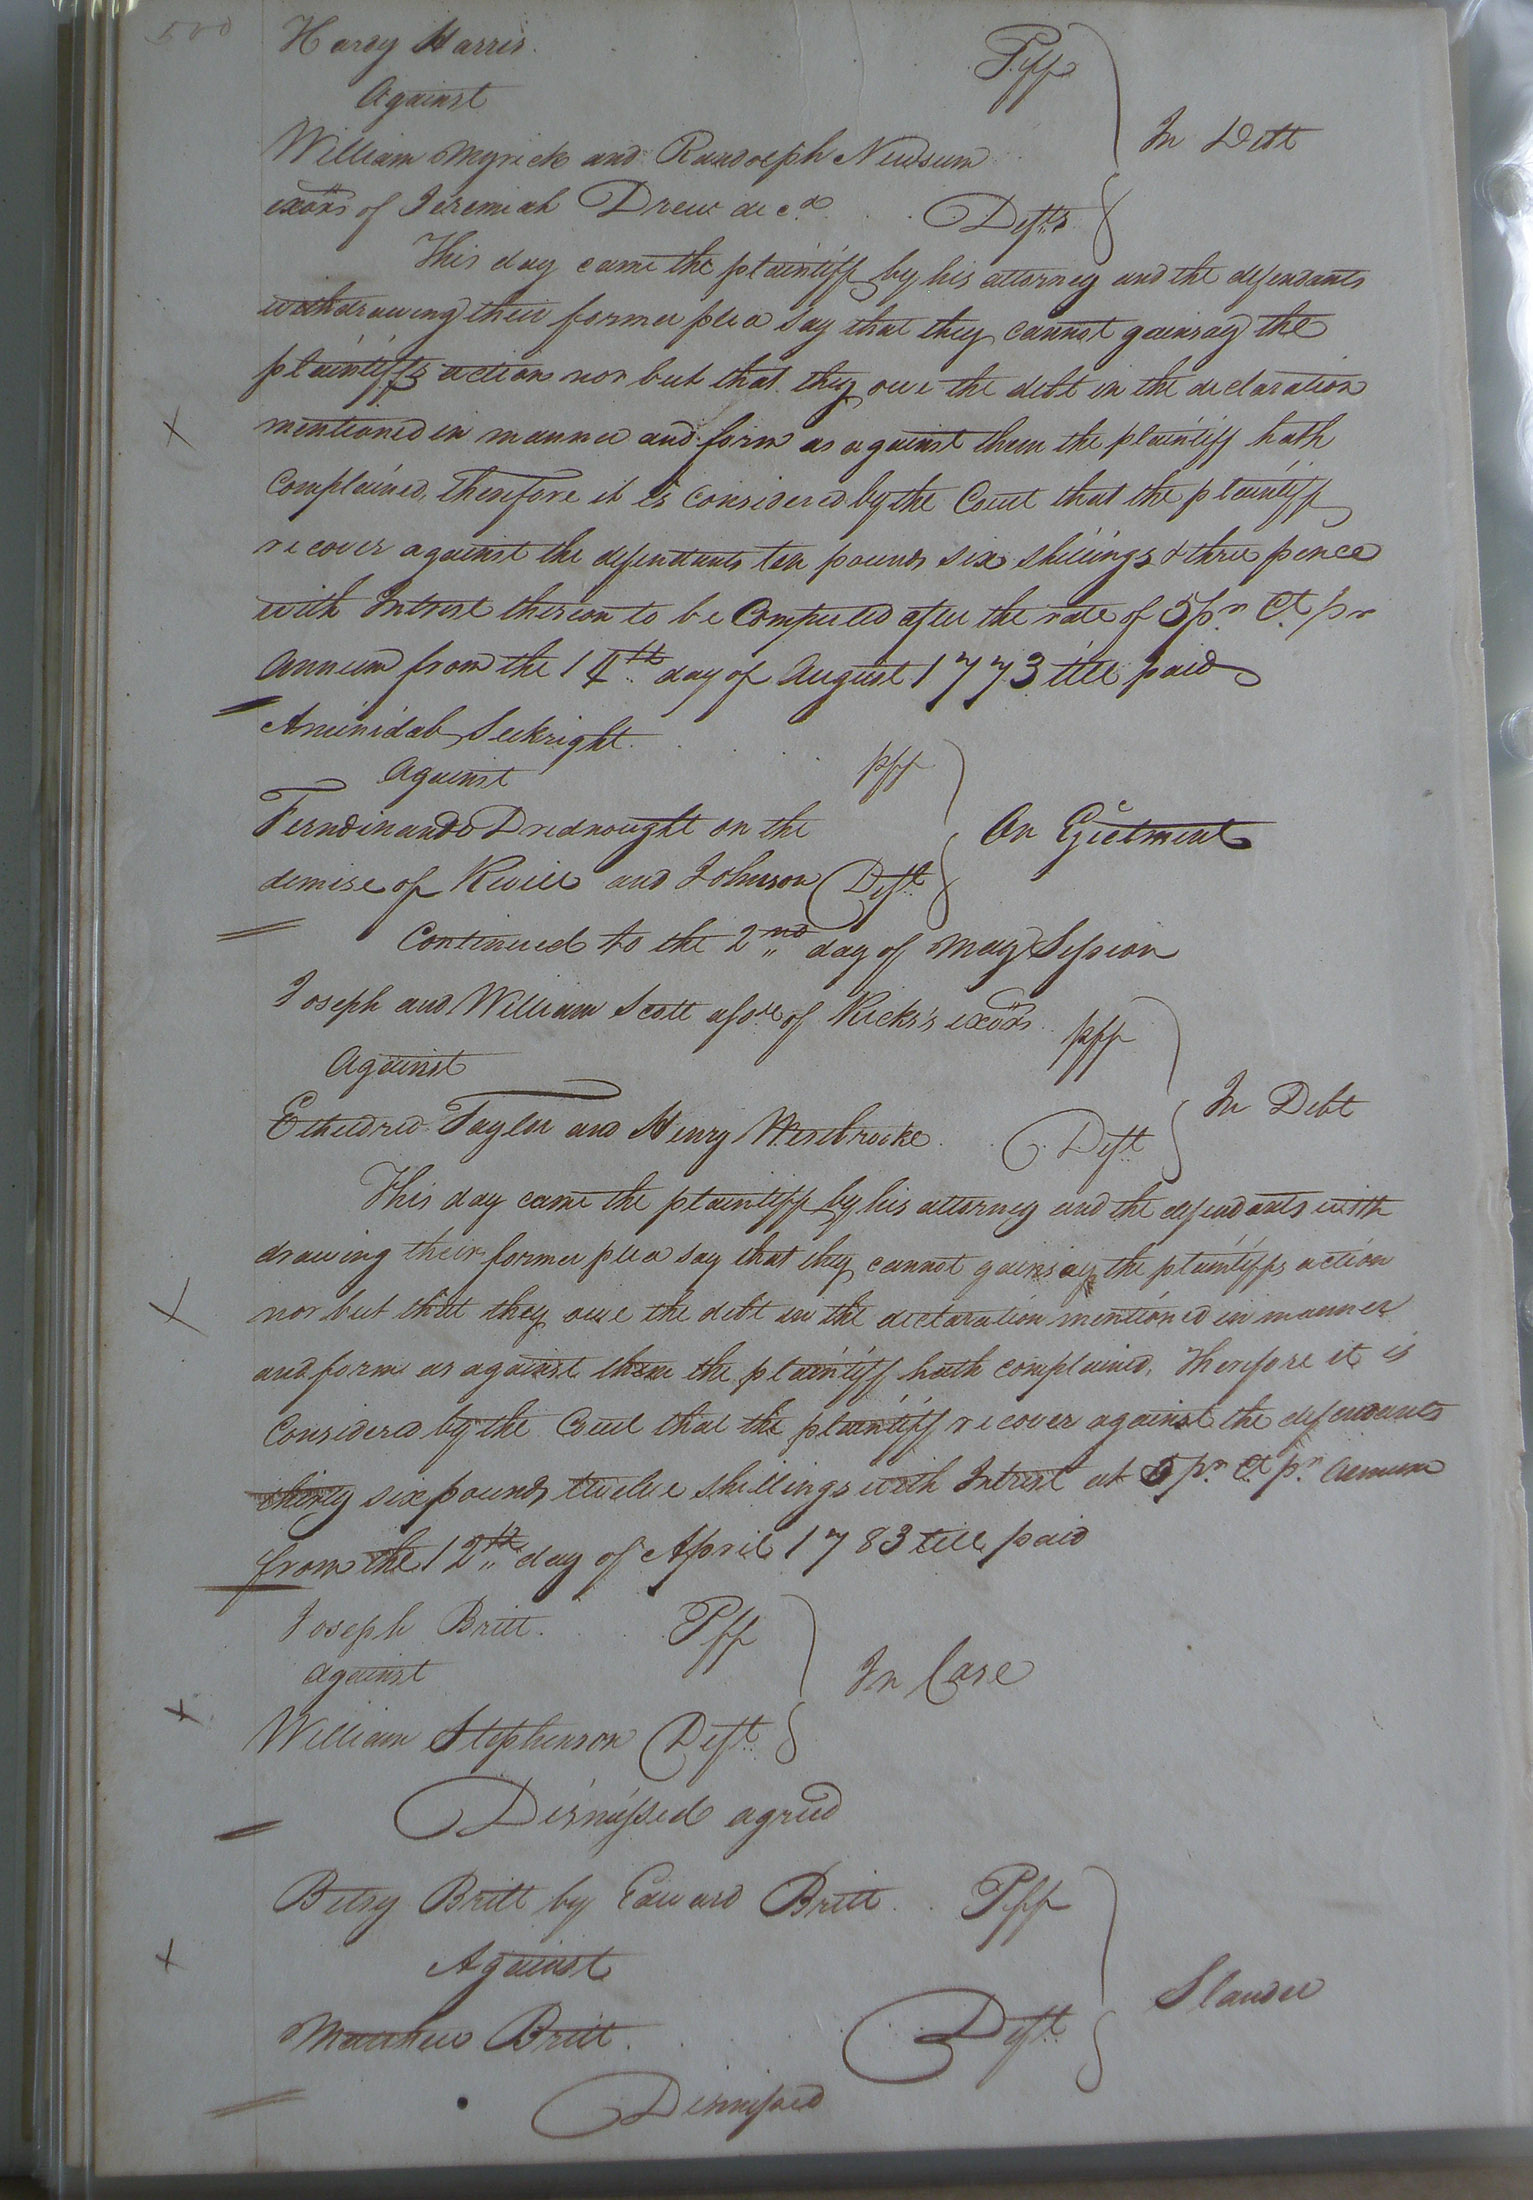 500
Hardy Harris. Plff
Against
In Debt
William Myrick and Randolph Newsum
exōrs of Jeremiah Drew decd. Defts
This day came the plaintiff by his attorney and the defendants
withdrawing their former plea say that they cannot gainsay the
plaintiffs action nor but that they owe the debt in the declaration
mentioned in manner and form as against them the plaintiff hath
Complained, Therefore it is Considered by the Court that the plaintiff
recover against the defendants ten pounds six shillings & three pence
with Intrest thereon to be Computed after the rate of 5 pr Ct pr
Annum from the 14th day of August 1773 till paid
Aminidab Seekright. plff
Against
Ferndinando Drednought on the
On Ejectment
demise of and Johnson Deft
Continued to the 2nd day of May Session
Joseph and William Scott assee of Ricks's exōrs plff
Against
In Debt
Etheldred Taylor and Henry Westbrooke. Deft
This day came the plaintiff by his attorney and the defendants with
drawing their former plea say that they cannot gainsay the plaintiffs action
nor but that they owe the debt in the declaration mentioned in manner
and form as against them the plaintiff hath complained, Therefore it is
Considered by the Court that the plaintiff recover against the defendants
thirty six pounds twelve shillings with Intrest at 5 pr Ct pr Annum
from the 12th day of April 1783 till paid
Joseph Britt. Plff
against
In Case
William Stephenson Deft
Dismissed agreed
Betsy Britt by Edward Britt. Plff
Against
Slander
Matthew Britt. Deft
Dismissed